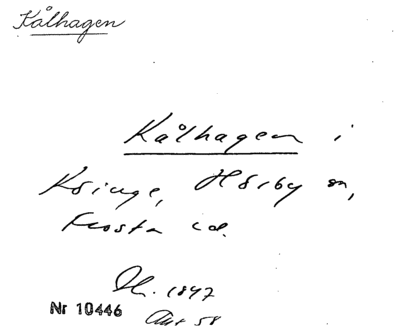 Kålhagen
Kålhagen i
Köinge, Hörby sn,
Frosta hd.
1847
Nr 10446
58